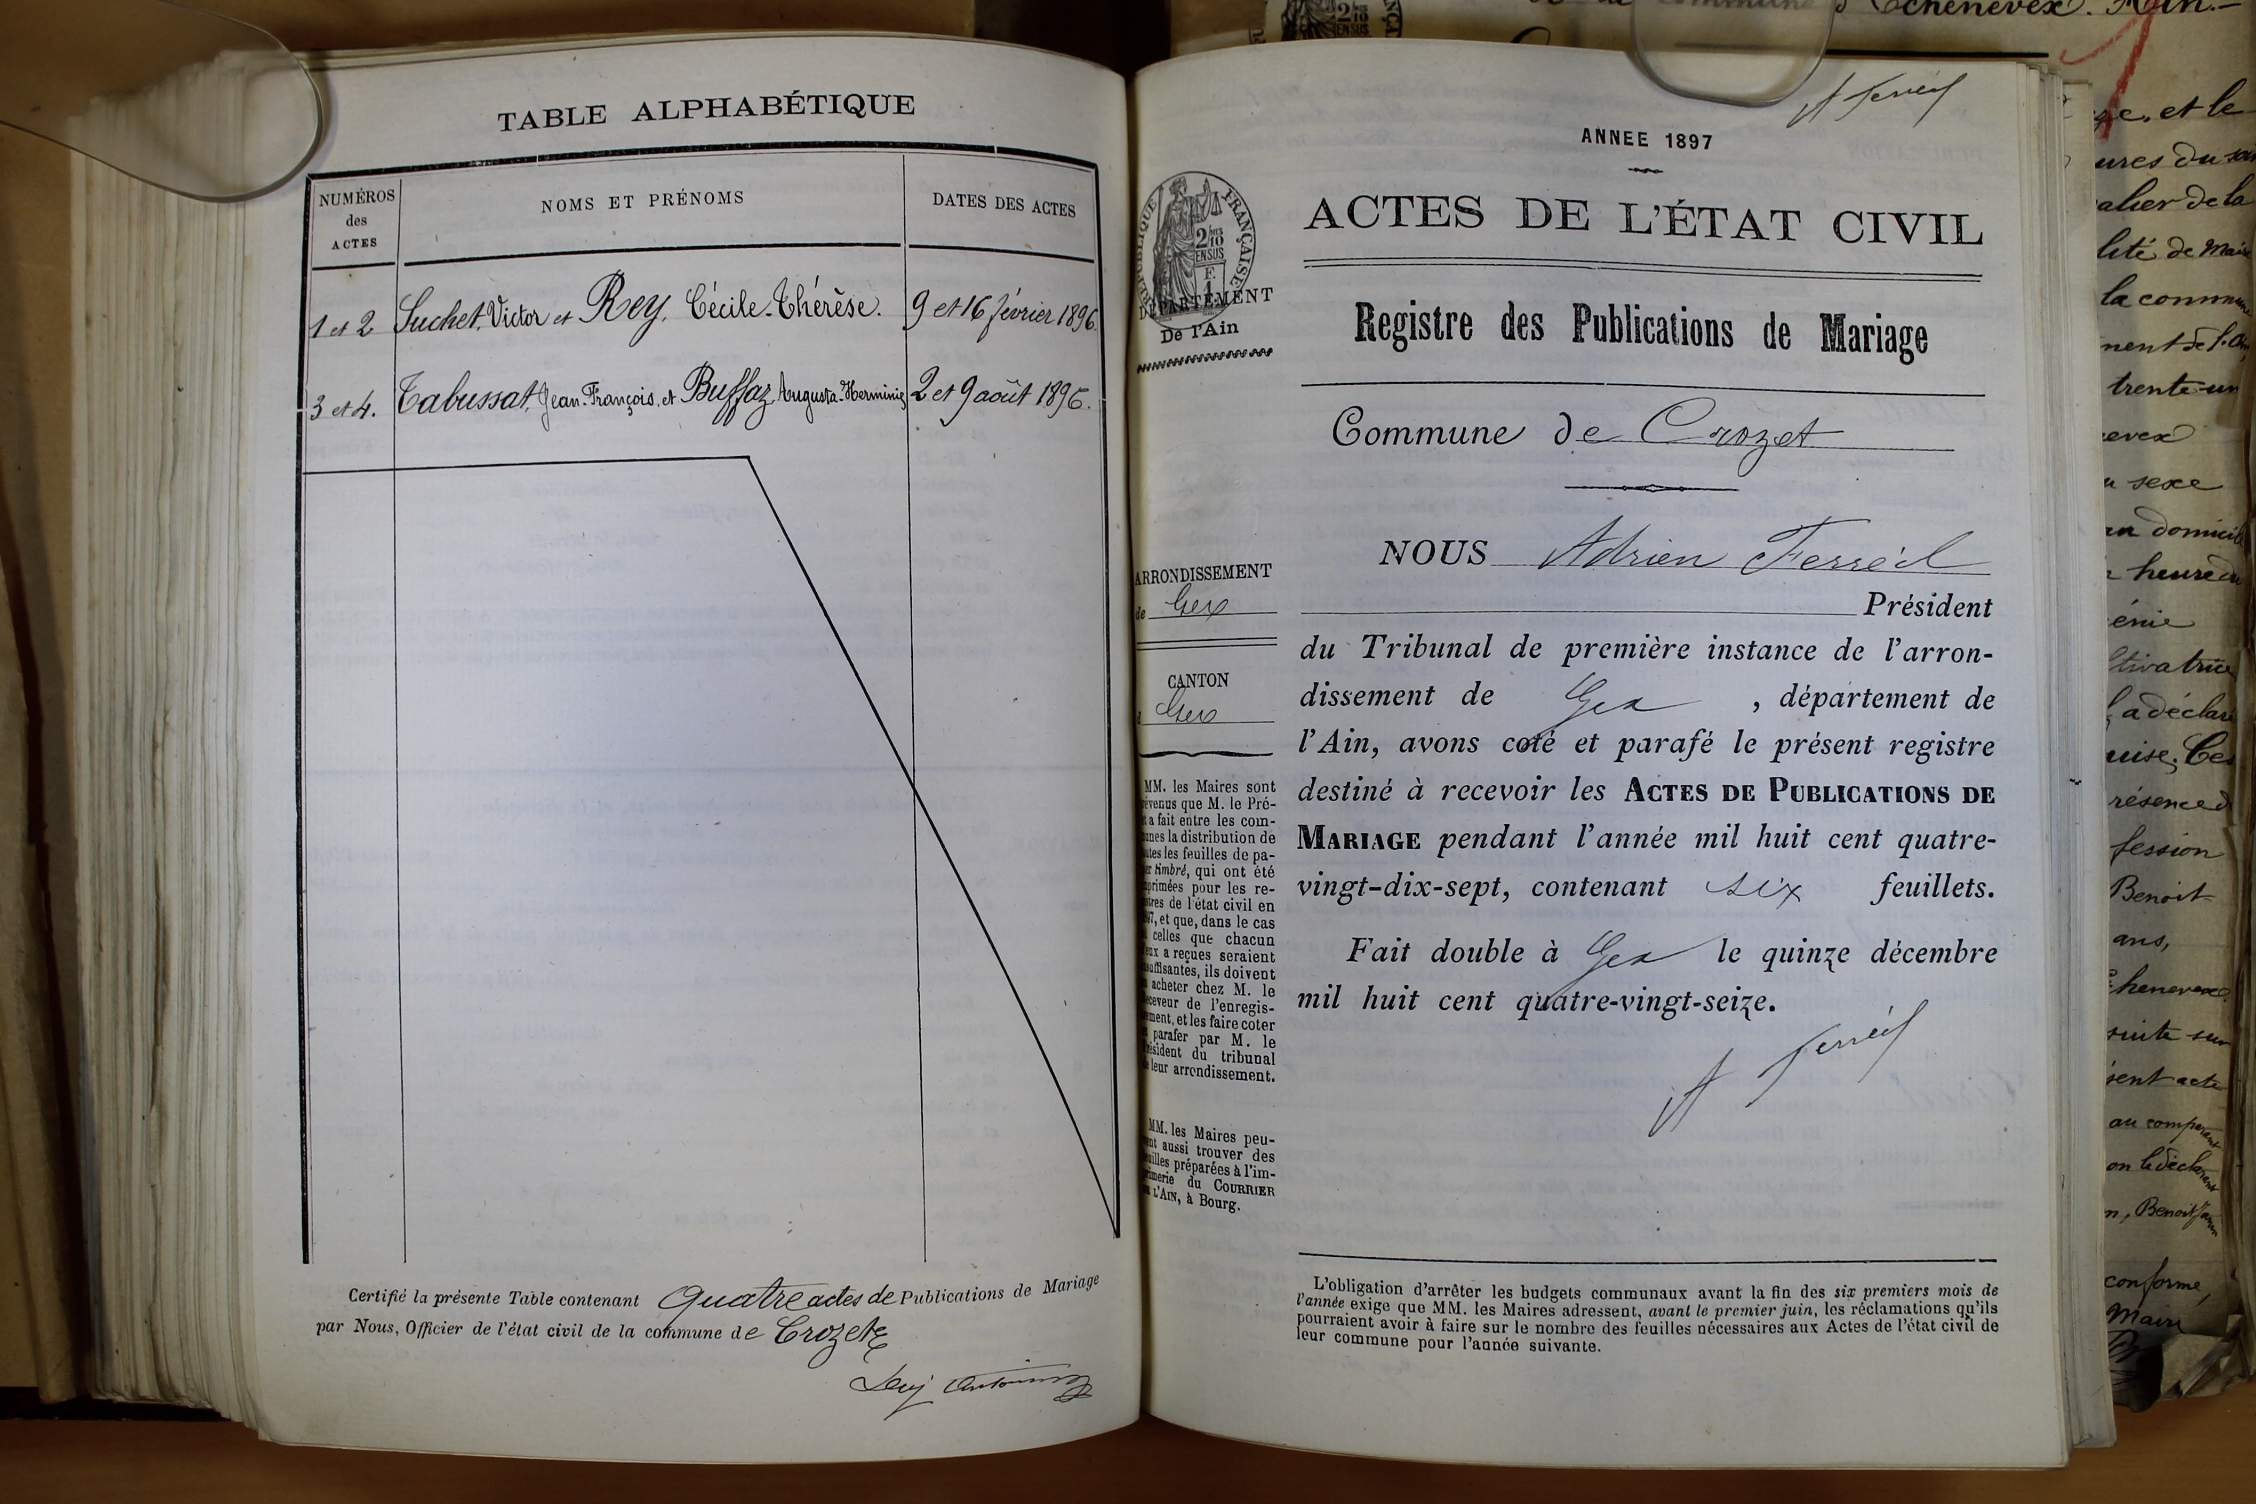 TABLE ALPHABÉTIQUE
NUMÉROS des ACTES
NOMS ET PRÉNOMS
DATES DES ACTES
1 et 2 Suchet, Victor et Rey, Cécile-Thérèse. 9 et 16 février 1896.
3 et 4. Tabussat, Jean-François, et Buffaz Augusta-Herminie 2 et 9 août 1896.
Certifié la présente Table contenant Quatre actes de Publications de Mariage
par Nous, Officier de l'état civil de la commune de Crozet
A Ferréil
ANNEE 1897
ACTES DE L'ÉTAT CIVIL
RÉPUBLIQUE FRANÇAISE
2/10 EN SUS
DÉPARTEMENT
De l'Ain
Registre des Publications de Mariage
Commune de Crozet
ARRONDISSEMENT
de Gex
CANTON
Gex
NOUS Adrien Ferréil
Président
du Tribunal de première instance de l'arron-
dissement de Gex, département de
l'Ain, avons coté et parafé le présent registre
destiné à recevoir les ACTES DE PUBLICATIONS DE
MARIAGE pendant l'année mil huit cent quatre-
vingt-dix-sept, contenant six feuillets.
Fait double à Gex le quinze décembre
mil huit cent quatre-vingt-seize.
A Ferréil
MM. les Maires sont
que M. le Pré-
a fait entre les com-
la distribution de
les feuilles de pa-
timbré, qui ont été
pour les re-
de l'état civil en
et que, dans le cas
celles que chacun
a reçues seraient
ils doivent
acheter chez M. le
de l'enregis-
et les faire coter
parafer par M. le
du tribunal
leur arrondissement.
MM. les Maires peu-
aussi trouver des
préparées à l'im-
du COURRIER
L'AIN, à Bourg.
L'obligation d'arrêter les budgets communaux avant la fin des six premiers mois de
l'année exige que MM. les Maires adressent, avant le premier juin, les réclamations qu'ils
pourraient avoir à faire sur le nombre des feuilles nécessaires aux Actes de l'état civil de
leur commune pour l'année suivante.
et le
du
de la
de Mair
la commune
trente-un
sexe
domicile
heure du
a déclaré
Benoit
ans,
suite sur
acte
au comparant
Benoit
conforme,
Maire